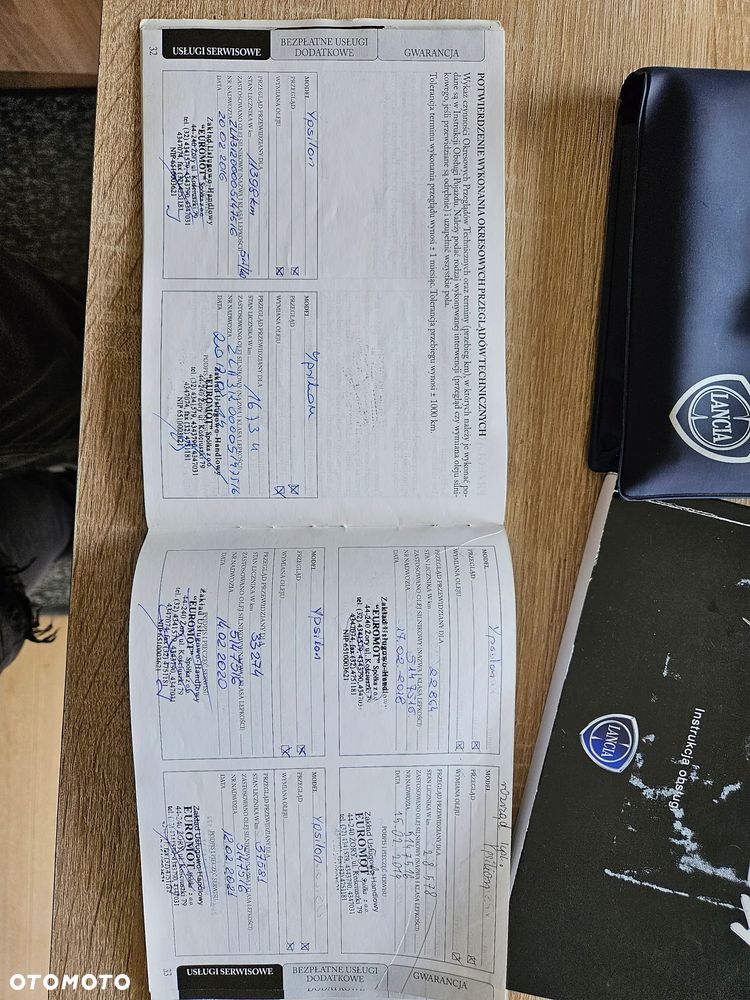 32
USŁUGI SERWISOWE
BEZPŁATNE USŁUGI
DODATKOWE
GWARANCJA
POTWIERDZENIE WYKONANIA OKRESOWYCH PRZEGLĄDÓW TECHNICZNYCH
Wykaz czynności Okresowych Przeglądów Technicznych oraz terminy (przebieg km), w których należy je wykonać po-
dane są w Instrukcji Obsługi Pojazdu. Należy podać rodzaj wykonywanej interwencji (przegląd czy wymiana oleju silni-
kowego, jeśli przewidziane są odrębnie) i uzupełnić wszystkie pola.
Tolerancja terminu wykonania przeglądu wynosi ± 1 miesiąc. Tolerancja przebiegu wynosi ± 1000 km.
MODEL Ypsilon
PRZEGLĄD
WYMIANA OLEJU
PRZEGLĄD PRZEWIDZIANY DLA
STAN LICZNIKA W km 11398 km
ZASTOSOWANO OLEJ SILNIKOWY (NAZWA I KLASA LEPKOŚCI) 5W/40
NR NADWOZIA ZLA31200005147516
DATA 20.02.2016
Zakład Usługowo-Handlowy
"EUROMOT" Spółka z o.o.
44-240 Żory ul. Kościuszki 79
NIP 6510003621
MODEL Ypsilon
PRZEGLĄD
WYMIANA OLEJU
PRZEGLĄD PRZEWIDZIANY DLA
STAN LICZNIKA W km 16734
ZASTOSOWANO OLEJ SILNIKOWY (NAZWA I KLASA LEPKOŚCI)
NR NADWOZIA ZLA31200005147516
DATA
Zakład Usługowo-Handlowy
"EUROMOT" Spółka z o.o.
44-240 Żory ul. Kościuszki 79
tel. (32) 4341579, 4343790, 4347031
4347074, fax (32) 4751181
NIP 6510003621
MODEL Ypsilon
PRZEGLĄD
WYMIANA OLEJU
PRZEGLĄD PRZEWIDZIANY DLA
STAN LICZNIKA W km 22864
ZASTOSOWANO OLEJ SILNIKOWY (NAZWA I KLASA LEPKOŚCI)
NR NADWOZIA 5147516
DATA 17.02.2018
Zakład Usługowo-Handlowy
"EUROMOT" Spółka z o.o.
44-240 Żory ul. Kościuszki 79
NIP 6510003621
MODEL
PRZEGLĄD
WYMIANA OLEJU
PRZEGLĄD PRZEWIDZIANY DLA
STAN LICZNIKA W km 28578
ZASTOSOWANO OLEJ SILNIKOWY (NAZWA I KLASA LEPKOŚCI)
NR NADWOZIA 5147516
DATA 15.02.2019
PODPIS I PIECZĘĆ SERWISU
Zakład Usługowo-Handlowy
EUROMOT Spółka z o.o.
44-240 ŻORY, ul. Kościuszki 79
MODEL Ypsilon
PRZEGLĄD
WYMIANA OLEJU
PRZEGLĄD PRZEWIDZIANY DLA
STAN LICZNIKA W km 33274
ZASTOSOWANO OLEJ SILNIKOWY (NAZWA I KLASA LEPKOŚCI)
NR NADWOZIA 5147516
14.02.2020
PODPIS I PIECZĘĆ SERWISU
Zakład Usługowo-Handlowy
"EUROMOT" Spółka z o.o.
44-240 Żory ul. Kościuszki 79
NIP 6510003621
MODEL Ypsilon
PRZEGLĄD
WYMIANA OLEJU
PRZEGLĄD PRZEWIDZIANY DLA
STAN LICZNIKA W km 37281
ZASTOSOWANO OLEJ SILNIKOWY (NAZWA I KLASA LEPKOŚCI)
NR NADWOZIA 5147516
12.02.2021
PODPIS I PIECZĘĆ SERWISU
Zakład Usługowo-Handlowy
EUROMOT Spółka z o.o.
44-240 ŻORY, ul. Kościuszki 79
USŁUGI SERWISOWE
BEZPŁATNE USŁUGI
DODATKOWE
GWARANCJA
33
LANCIA
LANCIA
Instrukcja obsługi
OTOMOTO